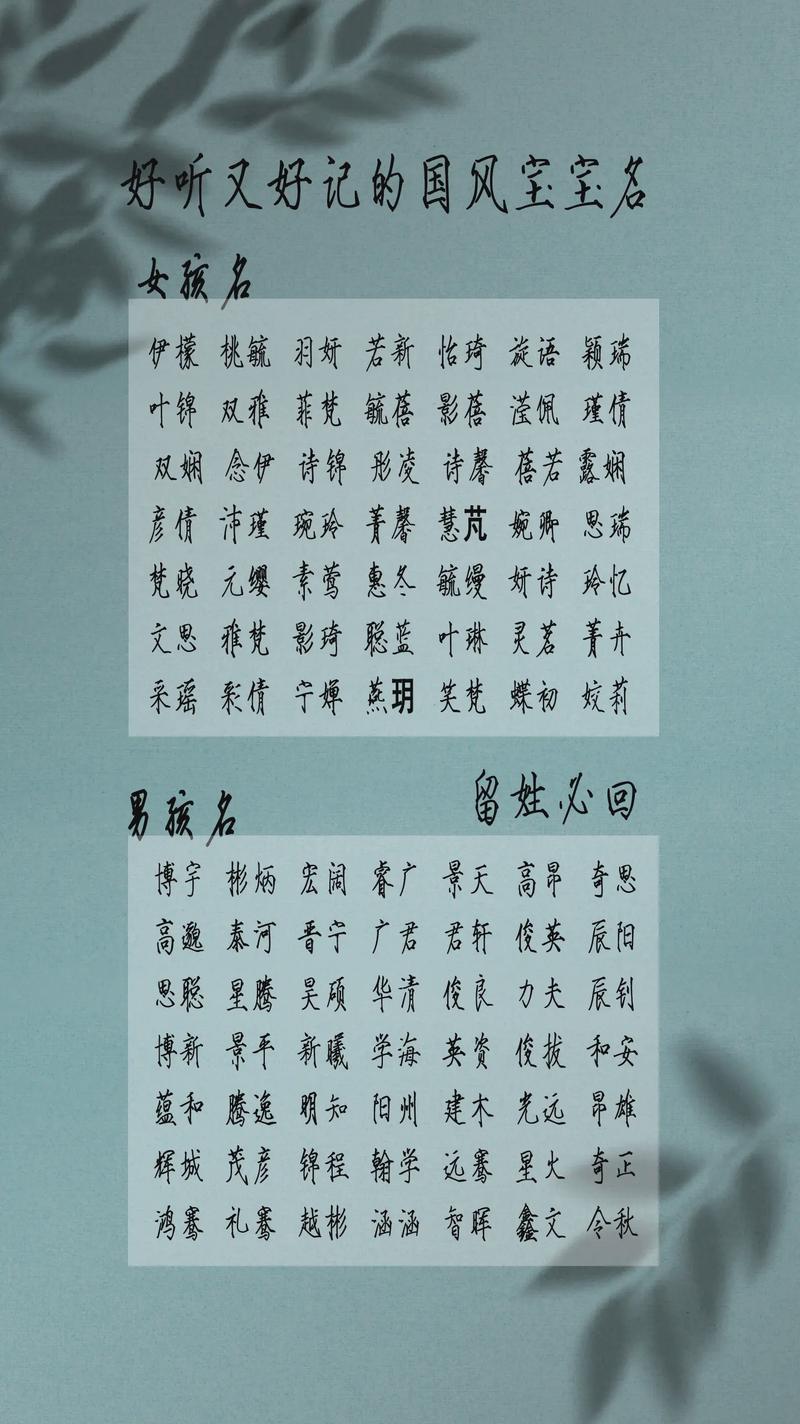 好听又好记的国风宝宝名
女孩名
伊檬 桃毓 羽妍 若新 怡琦 旋语 颖瑞
叶锦 双雅 菲梵 毓蓓 影蓓 滢佩 瑾倩
双娴 念伊 诗锦 彤凌 诗馨 蓓若 露娴
彦倩 沛瑾 琬玲 菁馨 慧芃 婉卿 思瑞
梵晓 元缨 素莺 惠冬 毓缦 妍诗 玲忆
文思 雅梵 影琦 聪蓝 叶琳 灵茗 菁卉
采瑶 彩倩 宁婵 燕玥 笑梵 蝶初 姣莉
男孩名
留姓必回
博宇 彬炳 宏阔 睿广 景天 高昂 奇思
高邈 泰河 晋宁 广君 君轩 俊英 辰阳
思聪 星腾 昊硕 华清 俊良 力夫 辰钊
博新 景平 新曦 学海 英资 俊拔 和安
蕴和 腾逸 明知 阳州 建木 光远 昂雄
辉城 茂彦 锦程 翰学 远骞 星火 奇正
鸿骞 礼骞 越彬 涵涵 智晖 鑫文 令秋